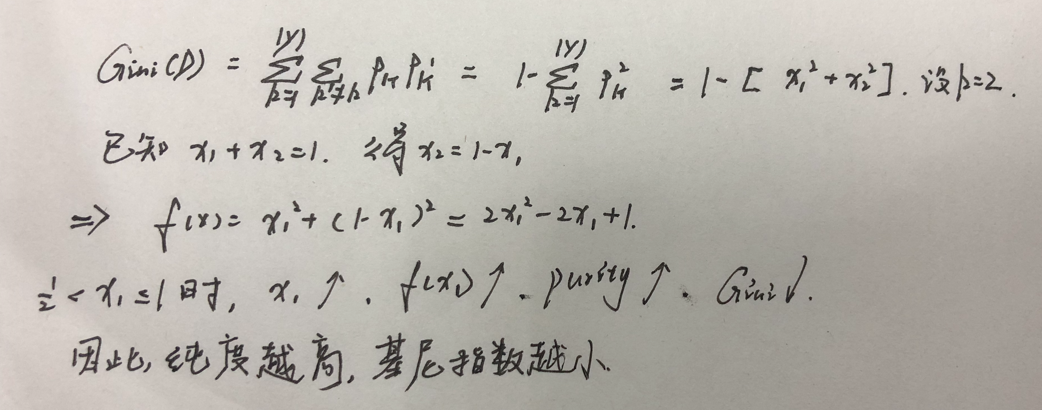 Gini(D) = \sum_{k=1}^{|y|} \sum_{k'≠k} p_k p_k' = 1 - \sum_{k=1}^{|y|} p_k^2 = 1 - [ x₁² + x₂² ]. 设k=2.
已知 x₁ + x₂ = 1. 得 x₂ = 1 - x₁
=> f(x) = x₁² + (1 - x₁)² = 2x₁² - 2x₁ + 1.
½ < x₁ ≤ 1 时, x₁ ↑. f(x) ↑. purity ↑. Gini ↓.
因此, 纯度越高, 基尼指数越小.